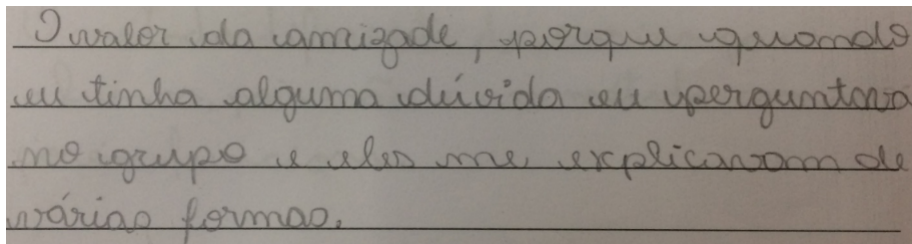 O valor da amizade, porque quando
eu tinha alguma dúvida eu perguntava
no grupo e eles me explicavam de
várias formas.